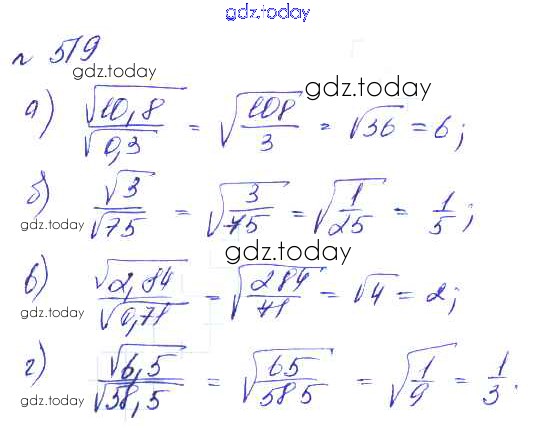 gdz.today
№ 519
gdz.today
а) √10,8 / √0,3 = √(108/3) = √36 = 6;
gdz.today
б) √3 / √75 = √(3/75) = √(1/25) = 1/5;
gdz.today
gdz.today
в) √2,84 / √0,71 = √(284/71) = √4 = 2;
gdz.today
г) √6,5 / √58,5 = √(65/585) = √(1/9) = 1/3.
gdz.today